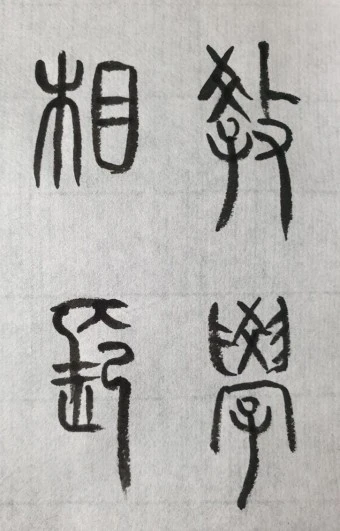 教學
相長